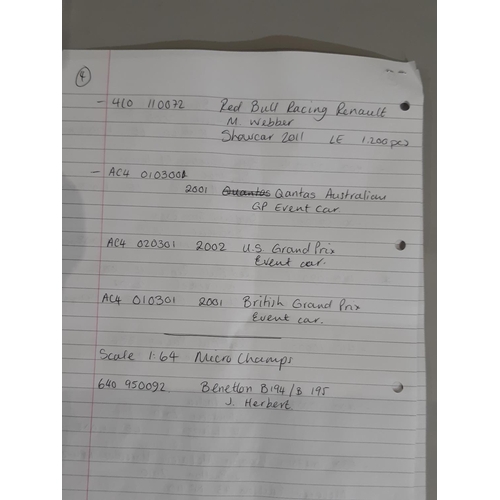 4
- 410 110072 Red Bull Racing Renault
M. Webber
Showcar 2011 LE 1.200pcs
- AC4 010300
2001 Quantas Qantas Australian
GP Event Car
AC4 020301 2002 U.S. Grand Prix
Event car.
AC4 010301 2001 British Grand Prix
Event car.
Scale 1:64 Micro Champs
640 950092 Benetton B194/B 195
J. Herbert